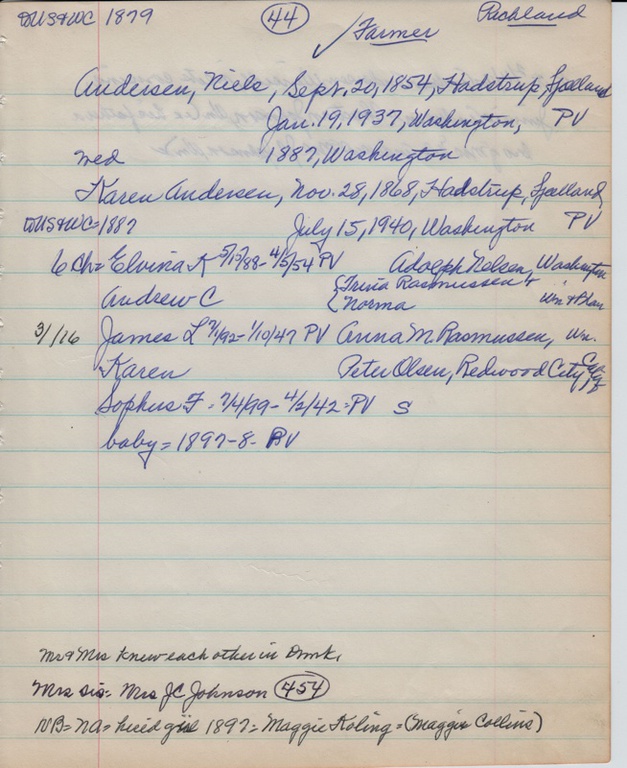 DUS&WC 1879 44 Richland
✓ Farmer
Andersen, Niels, Sept. 20, 1854, Hadstrup, Sjelland
Jan. 19, 1937, Washington, PV
wed 1887, Washington
Karen Andersen, Nov. 28, 1868, Hadstrup, Sjelland,
DUS&WC=1887 July 15, 1940, Washington PV
6 Ch= Elvina K 5/13/88-4/5/54 PV Adolph Nelsen, Washington
Andrew C { Trina Rasmussen +
Norma Wn + Blair
3/16 James L 7/92-1/10/47 PV Anna M. Rasmussen, Wn.
Karen Peter Olsen, Redwood City,
Sophus F - 7/4/99-4/2/42=PV S
baby = 1897-8- PV
Mr & Mrs knew each other in Dmk.
Mrs sis= Mrs JC Johnson 454
NB= NA= hired girl 1897= Maggie Koling= (Maggie Collins)